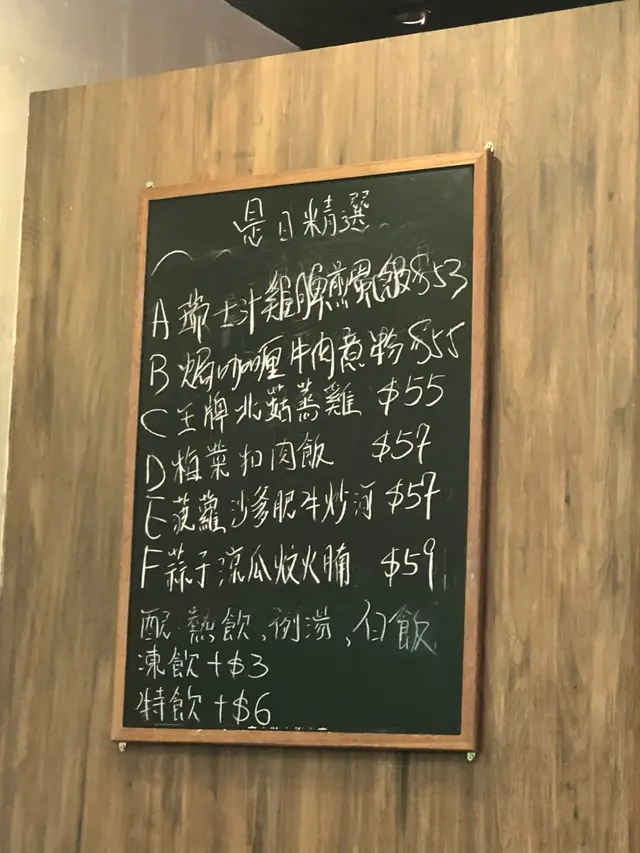 是日精選
A 瑞士汁雞脾煎蛋飯 $53
B 焗咖喱牛肉意粉 $55
C 王牌北菇蒸雞 $55
D 梅菜扣肉飯 $57
E 菠蘿沙爹肥牛炒河 $57
F 蒜子涼瓜炆火腩 $59
配:熱飲、例湯、白飯
凍飲+$3
特飲+$6